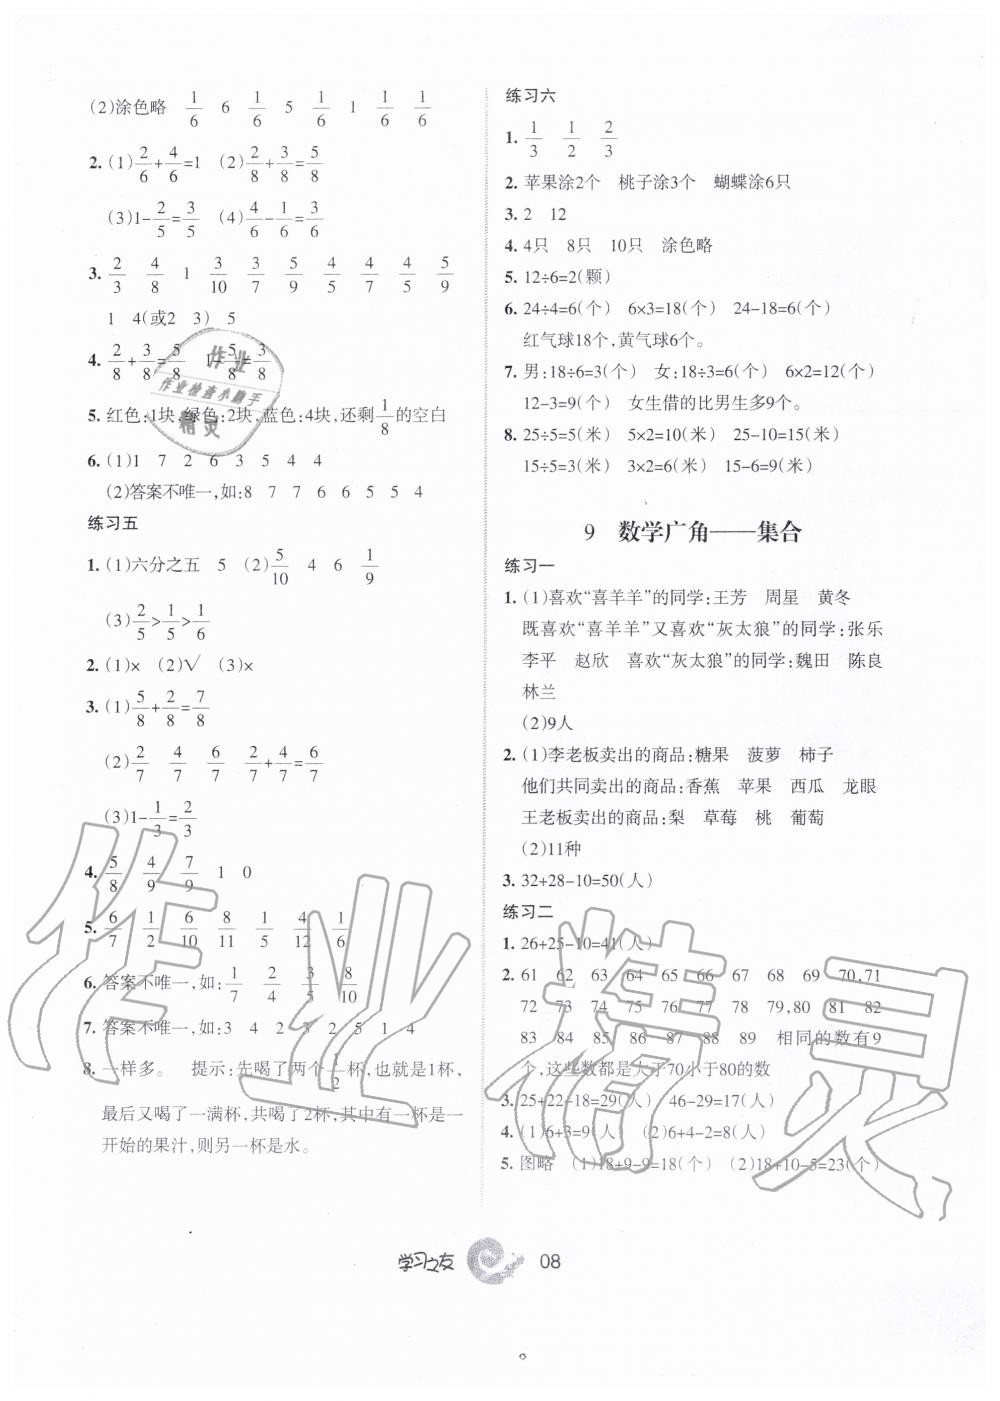 (2)涂色略 1/6 6 1/6 5 1/6 1 1/6 1/6
2. (1)2/6+4/6=1 (2)2/8+3/8=5/8
(3)1-2/5=3/5 (4)4/6-1/6=3/6
3. 2/3 4/8 1 3/10 3/7 5/9 4/5 4/7 4/5 5/9
1 4(或2 3) 5
4. 2/8+3/8=5/8 1-5/8=3/8
5. 红色:1块,绿色:2块,蓝色:4块,还剩1/8的空白
6. (1)1 7 2 6 3 5 4 4
(2)答案不唯一,如:8 7 7 6 6 5 5 4
练习五
1. (1)六分之五 5 (2)5/10 4 6 1/9
(3)2/5>1/5>1/6
2. (1)× (2)√ (3)×
3. (1)5/8+2/8=7/8
(2)2/7 4/7 6/7 2/7+4/7=6/7
(3)1-1/3=2/3
4. 5/8 4/9 7/9 1 0
5. 6/7 1/2 6/10 8/11 1/5 4/12 1/6
6. 答案不唯一,如:1/7 2/4 3/5 8/10
7. 答案不唯一,如:3 4 2 3 2 5 1 4
8. 一样多。 提示:先喝了两个1/2杯,也就是1杯,
最后又喝了一满杯,共喝了2杯,其中有一杯是一
开始的果汁,则另一杯是水。
练习六
1. 1/3 1/2 2/3
2. 苹果涂2个 桃子涂3个 蝴蝶涂6只
3. 2 12
4. 4只 8只 10只 涂色略
5. 12÷6=2(颗)
6. 24÷4=6(个) 6×3=18(个) 24-18=6(个)
红气球18个,黄气球6个。
7. 男:18÷6=3(个) 女:18÷3=6(个) 6×2=12(个)
12-3=9(个) 女生借的比男生多9个。
8. 25÷5=5(米) 5×2=10(米) 25-10=15(米)
15÷5=3(米) 3×2=6(米) 15-6=9(米)
9 数学广角——集合
练习一
1. (1)喜欢“喜羊羊”的同学:王芳 周星 黄冬
既喜欢“喜羊羊”又喜欢“灰太狼”的同学:张乐
李平 赵欣 喜欢“灰太狼”的同学:魏田 陈良
林兰
(2)9人
2. (1)李老板卖出的商品:糖果 菠萝 柿子
他们共同卖出的商品:香蕉 苹果 西瓜 龙眼
王老板卖出的商品:梨 草莓 桃 葡萄
(2)11种
3. 32+28-10=50(人)
练习二
1. 26+25-10=41(人)
2. 61 62 63 64 65 66 67 68 69 70,71
72 73 74 75 76 77 78 79,80 81 82
83 84 85 86 87 88 89 相同的数有9
个,这些数都是大于70小于80的数
3. 25+22-18=29(人) 46-29=17(人)
4. (1)6+3=9(人) (2)6+4-2=8(人)
5. 图略 (1)18+9-9=18(个) (2)18+10-5=23(个)
学习之友 08
作业
作业检查小助手
精灵
作业精灵